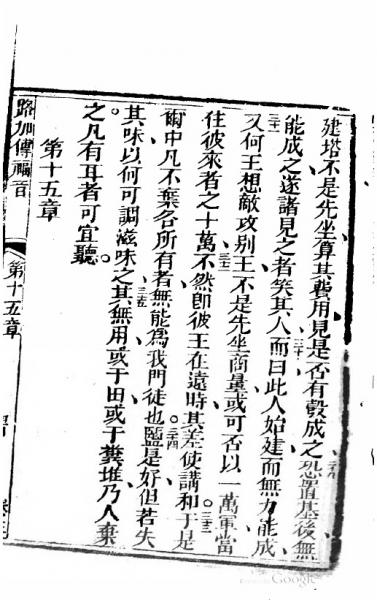 建塔不是先坐算其費用見是否有彀成之恐置基後無
能成之遂諸見之者笑其人三十而曰此人始建而無力能成
三一又何王想敵攻别王不是先坐商量或可否以一萬軍當
往彼來者之十萬三二不然即彼王在遠時其差使講和三三于是
爾中凡不棄各所有者無能為我門徒也。三四鹽是好但若失
其味以何可調滋味之三五其無用或于田或于糞堆乃人棄
之凡有耳者可宜聽。
第十五章
路加傳福音
第十五章
Google